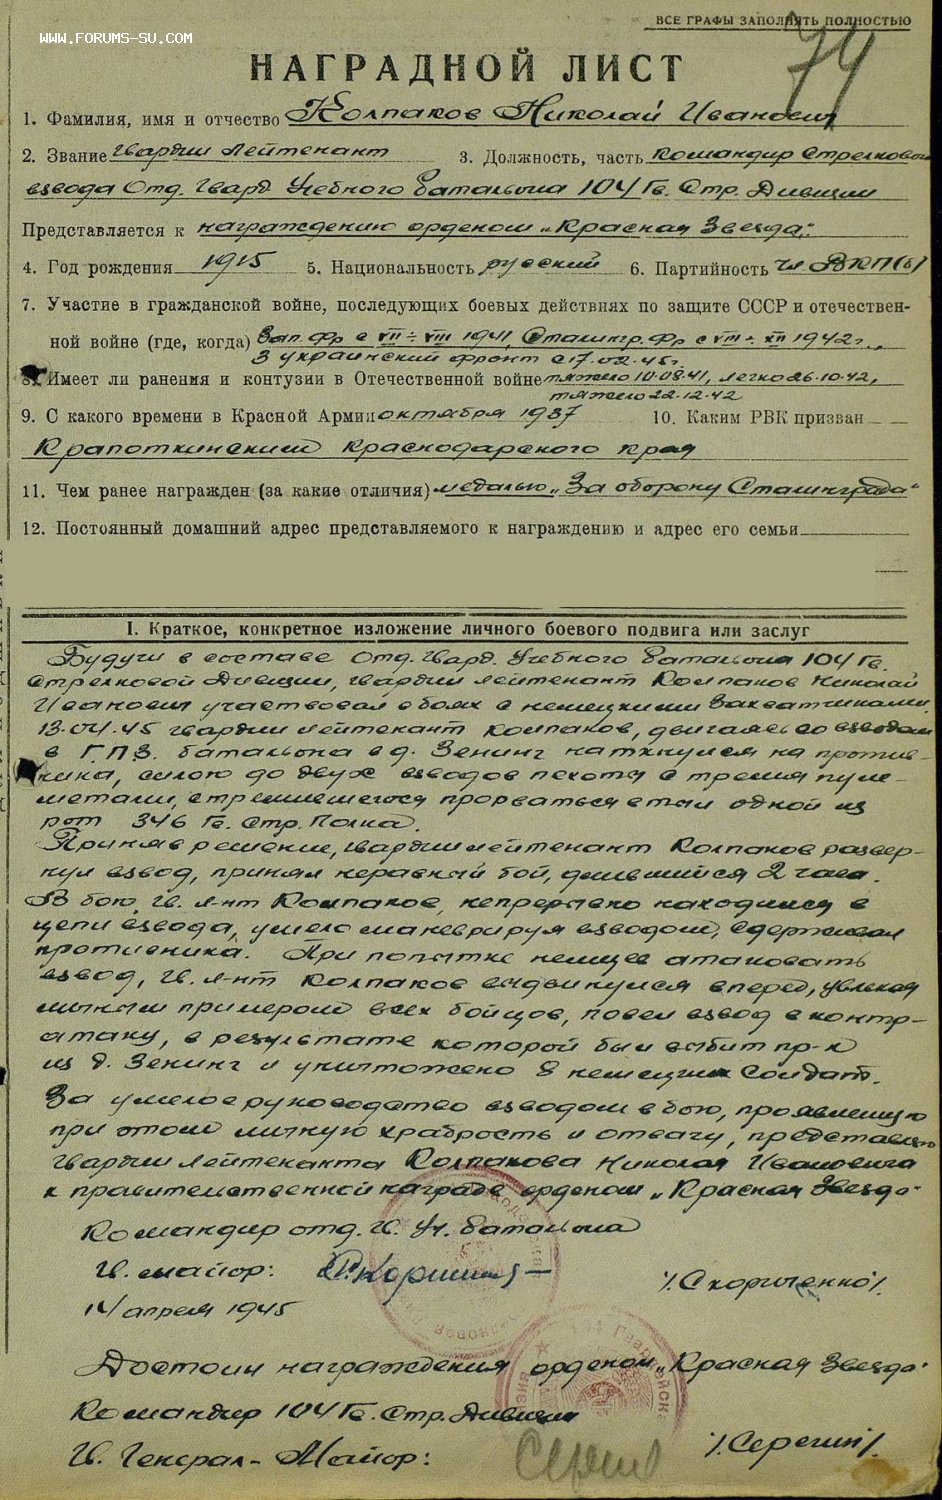 ВСЕ ГРАФЫ ЗАПОЛНЯТЬ ПОЛНОСТЬЮ
WWW.FORUMS-SU.COM
74
НАГРАДНОЙ ЛИСТ
1. Фамилия, имя и отчество Колпаков Николай Иванович
2. Звание гвардии лейтенант 3. Должность, часть командир стрелкового
взвода Отд. Гвард. Учебного батальона 104 Гв. Стр. Дивизии
Представляется к награждению орденом „Красная Звезда".
4. Год рождения 1915 5. Национальность русский 6. Партийность Чл. ВКП(б)
7. Участие в гражданской войне, последующих боевых действиях по защите СССР и отечествен-
ной войне (где, когда) Зап. Фр с VII÷VIII 1941, Сталингр. Фр с VIII÷XII 1942г.,
3 украинский фронт с 17.02.45г.
8. Имеет ли ранения и контузии в Отечественной войне тяжело 10.08.41, легко 26.10.42,
тяжело 22.12.42
9. С какого времени в Красной Армии октября 1937 10. Каким РВК призван
Крапоткинский Краснодарского края
11. Чем ранее награжден (за какие отличия) медалью „За оборону Сталинграда"
12. Постоянный домашний адрес представляемого к награждению и адрес его семьи
I. Краткое, конкретное изложение личного боевого подвига или заслуг
Будучи в составе Отд. Гвард. Учебного батальона 104 Гв.
Стрелковой Дивизии, гвардии лейтенант Колпаков Николай
Иванович участвовал в боях с немецкими захватчиками.
13.04.45 гвардии лейтенант Колпаков, двигаясь со взводом
в Г.П.З. батальона в д. Зенинг наткнулся на против-
ника, силою до двух взводов пехоты с тремя пуле-
метами, стремившегося прорваться в тыл одной из
рот 346 Гв. Стр. Полка.
Приняв решение, гвардии лейтенант Колпаков развер-
нул взвод, принял неравный бой, длившийся 2 часа.
В бою гв. л-нт Колпаков, непрерывно находился в
цепи взвода, умело маневрируя взводом, сдерживал
противника. При попытке немцев атаковать
взвод, гв. л-нт Колпаков выдвинулся вперед, увлекая
личным примером всех бойцов, повел взвод в контр-
атаку, в результате которой был выбит пр-к
из д. Зенинг и уничтожено 8 немецких солдат.
За умелое руководство взводом в бою, проявленную
при этом личную храбрость и отвагу, представляю
гвардии лейтенанта Колпакова Николая Ивановича
к правительственной награде орденом „Красная Звезда"
Командир отд. Гв. Уч. батальона
Гв. майор: /Скориченко/.
14 апреля 1945
Достоин награждения орденом „Красная Звезда"
Командир 104 Гв. Стр. Дивизии
Гв. Генерал-Майор: Серегин /Серегин/.